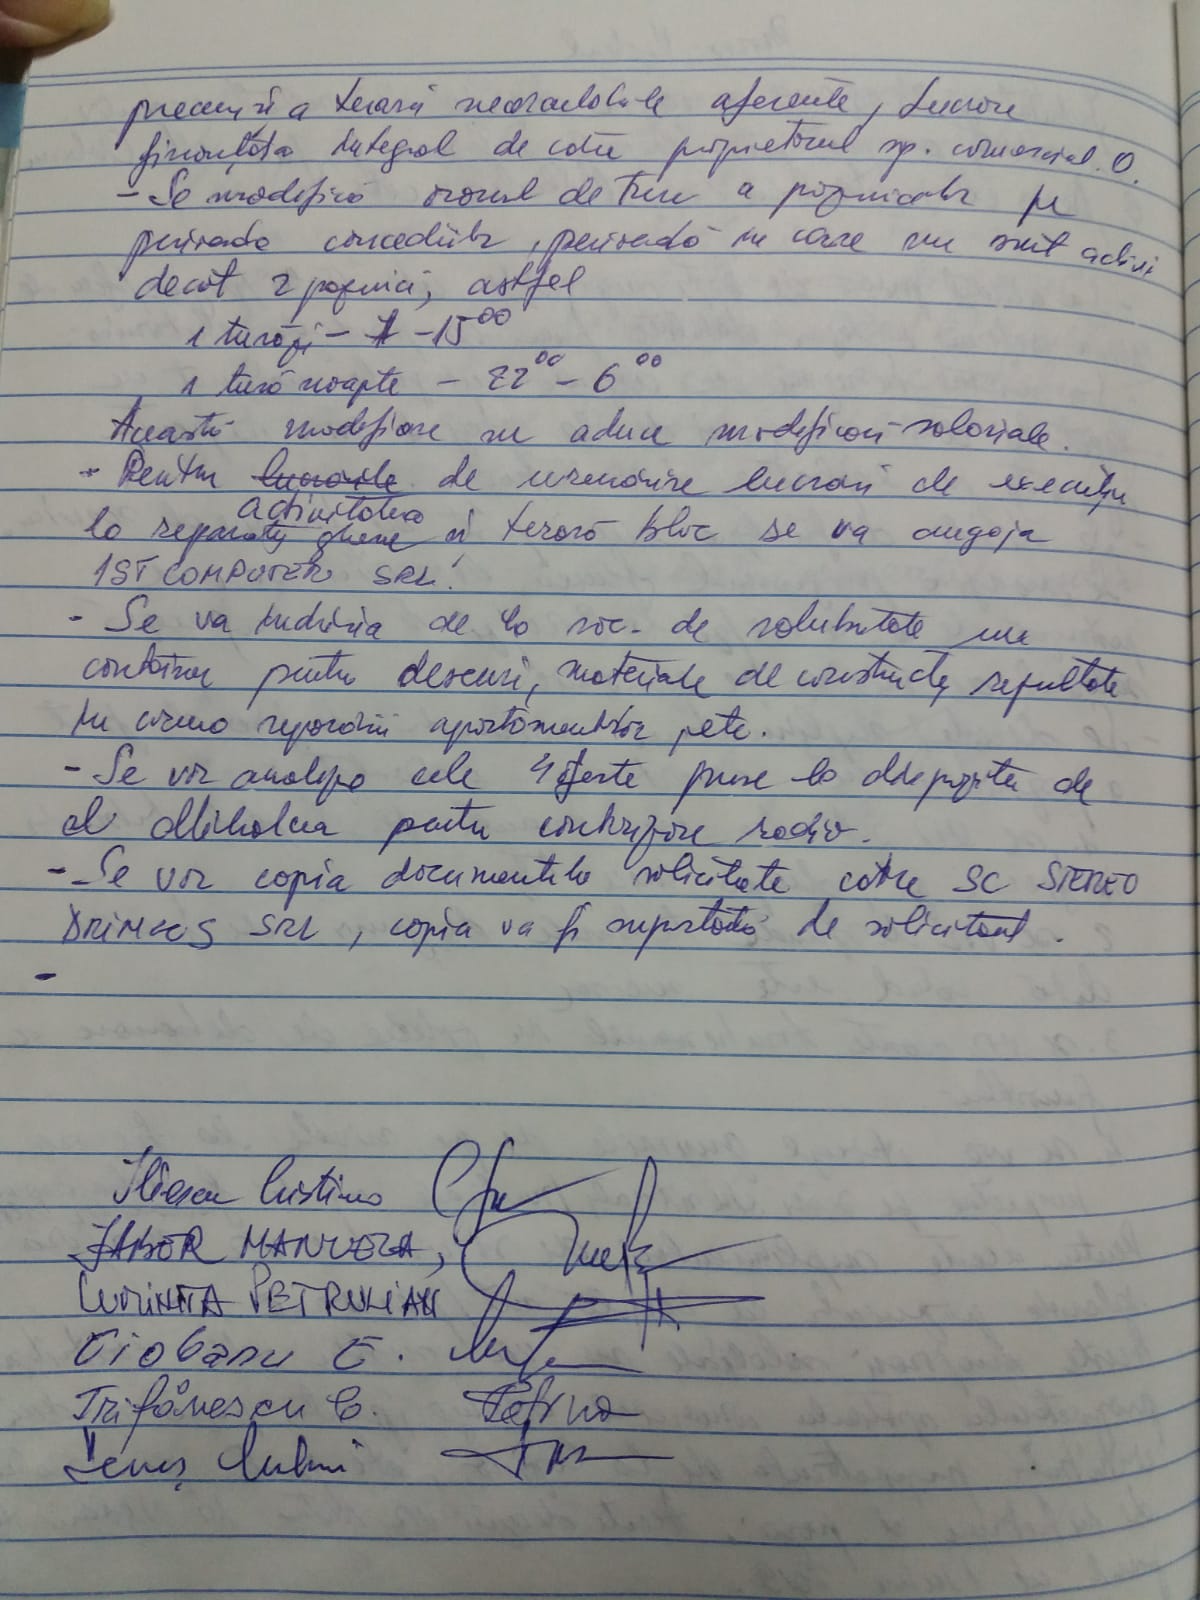 precum și a terasei necirculabile aferente, lucrare
finanțată integral de către proprietarul sp. comercial.
- Se modifică orarul de ture a paznicilor pe
perioada concediilor, perioadă în care nu sunt activi
decât 2 paznici, astfel
1 tură zi - 7 - 15 00
1 tură noapte - 22 00 - 6 00
Această modificare nu aduce modificări salariale.
- Pentru activitatea de urmărire lucrări de execuție
la reparații ghene și terasă bloc se va angaja
1ST COMPUTER SRL.
- Se va închiria de la soc. de salubritate un
container pentru deșeuri, materiale de construcție rezultate
în urma reparării apartamentelor, etc.
- Se vor analiza cele 4 oferte puse la dispoziție de
dl Mihalcea pentru contorizare radio.
- Se vor copia documentele solicitate către SC STEREO
DRINKS SRL, copia va fi suportată de solicitant.
-
Iliescu Cristina
MANUELA,
LUMINITA PETRULIAN
Ciobanu E.
Trifănescu C.